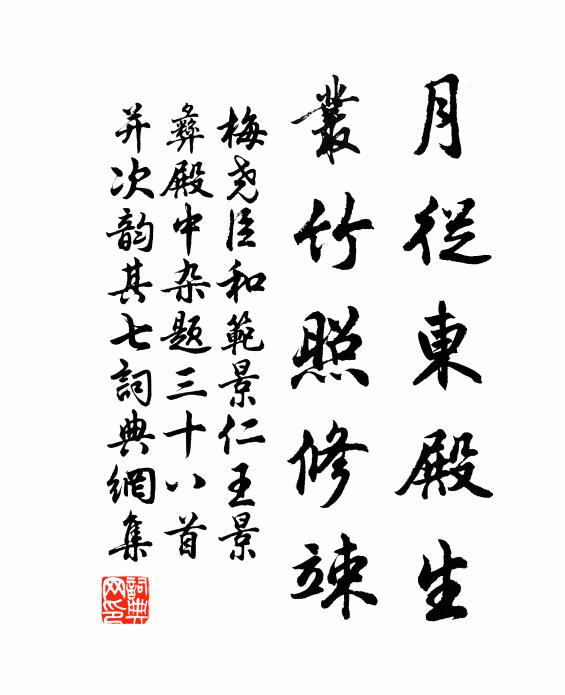 月從東殿生
叢竹照修竦
梅堯臣和範景仁王景
彝殿中杂題三十八首
并次韵其七詞典網集
詞典
网印